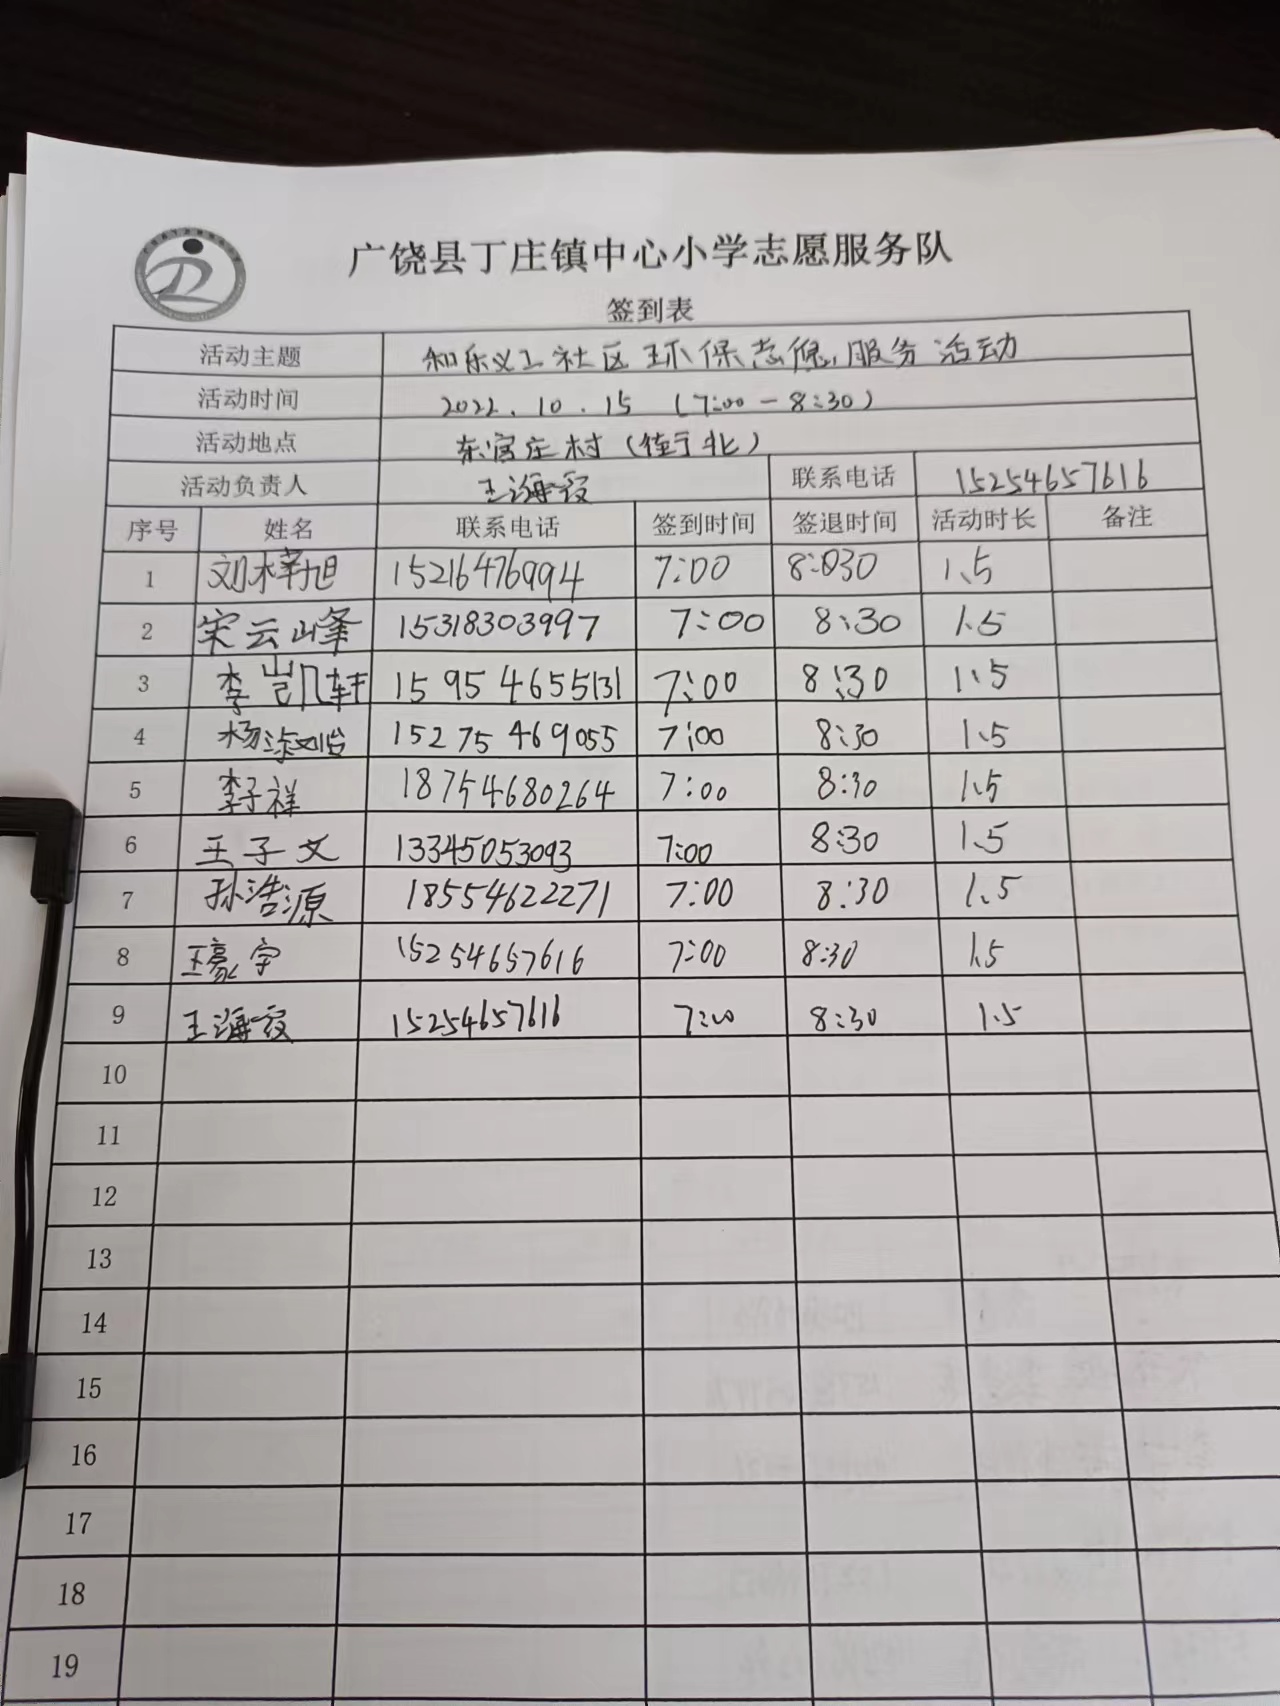 广饶县丁庄镇中心小学志愿服务队
签到表
活动主题 和乐义工社区环保志愿服务活动
活动时间 2022.10.15 (7:00-8:30)
活动地点 东官庄村(往宁北)
活动负责人 王海霞 联系电话 15254657616
序号 姓名 联系电话 签到时间 签退时间 活动时长 备注
1 刘梓旭 15216476994 7:00 8:030 1.5
2 宋云峰 15318303997 7:00 8:30 1.5
3 李凯轩 15954655131 7:00 8:30 1.5
4 杨 15275469055 7:00 8:30 1.5
5 李子祥 18754680264 7:00 8:30 1.5
6 王子文 13345053093 7:00 8:30 1.5
7 孙浩源 18554622271 7:00 8:30 1.5
8 王豪宇 15254657616 7:00 8:30 1.5
9 王海霞 15254657616 7:00 8:30 1.5
10
11
12
13
14
15
16
17
18
19